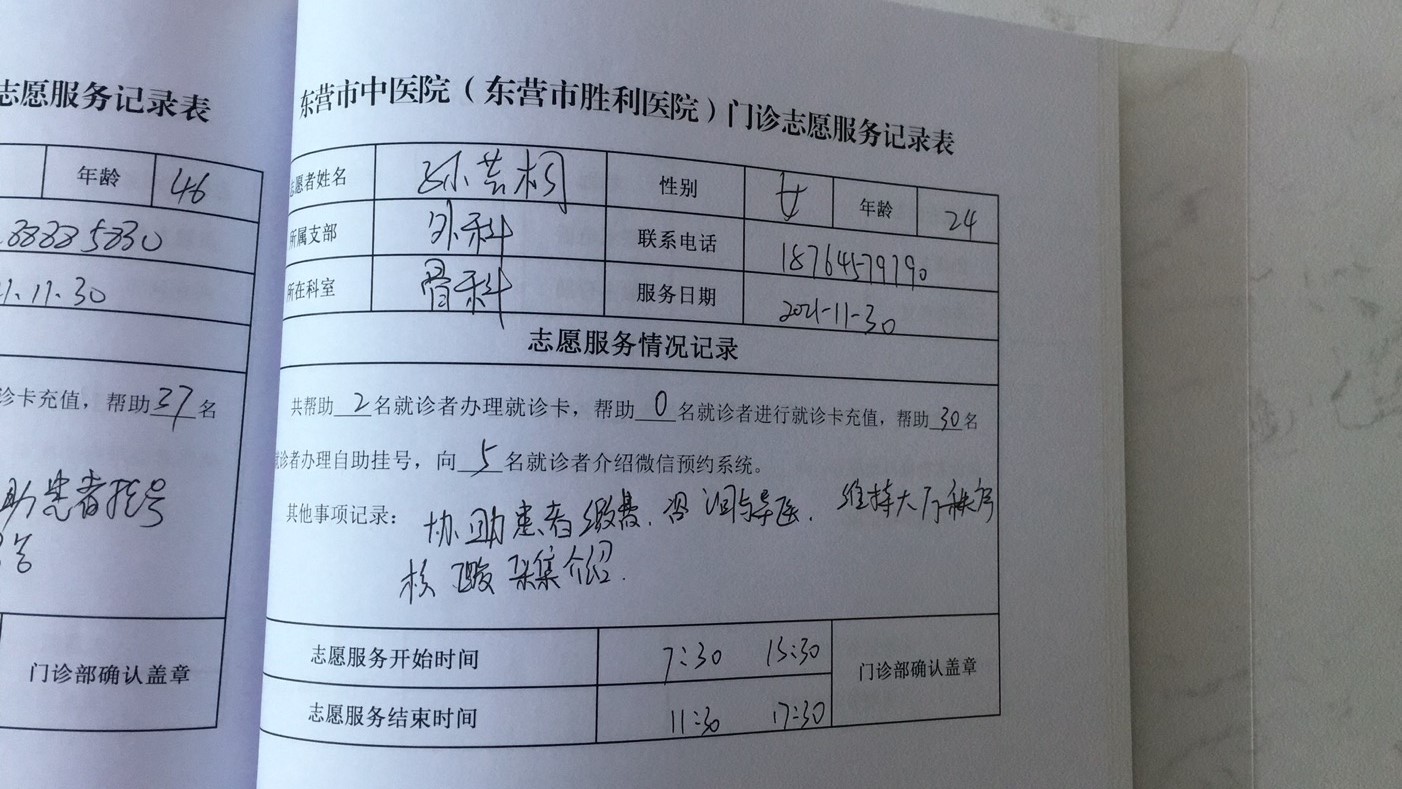 志愿服务记录表
年龄 46
38885830
1.11.30
诊卡充值，帮助37名
助患者挂号
门诊部确认盖章
东营市中医院（东营市胜利医院）门诊志愿服务记录表
志愿者姓名 孙芸桐 性别 女 年龄 24
所属支部 外科 联系电话 18764579790
所在科室 骨科 服务日期 2021-11-30
志愿服务情况记录
共帮助2名就诊者办理就诊卡，帮助0名就诊者进行就诊卡充值，帮助30名
就诊者办理自助挂号，向5名就诊者介绍微信预约系统。
其他事项记录： 协助患者缴费.咨询与导医.维持大厅秩序
核酸采集介绍.
志愿服务开始时间 7:30 15:30 门诊部确认盖章
志愿服务结束时间 11:30 17:30